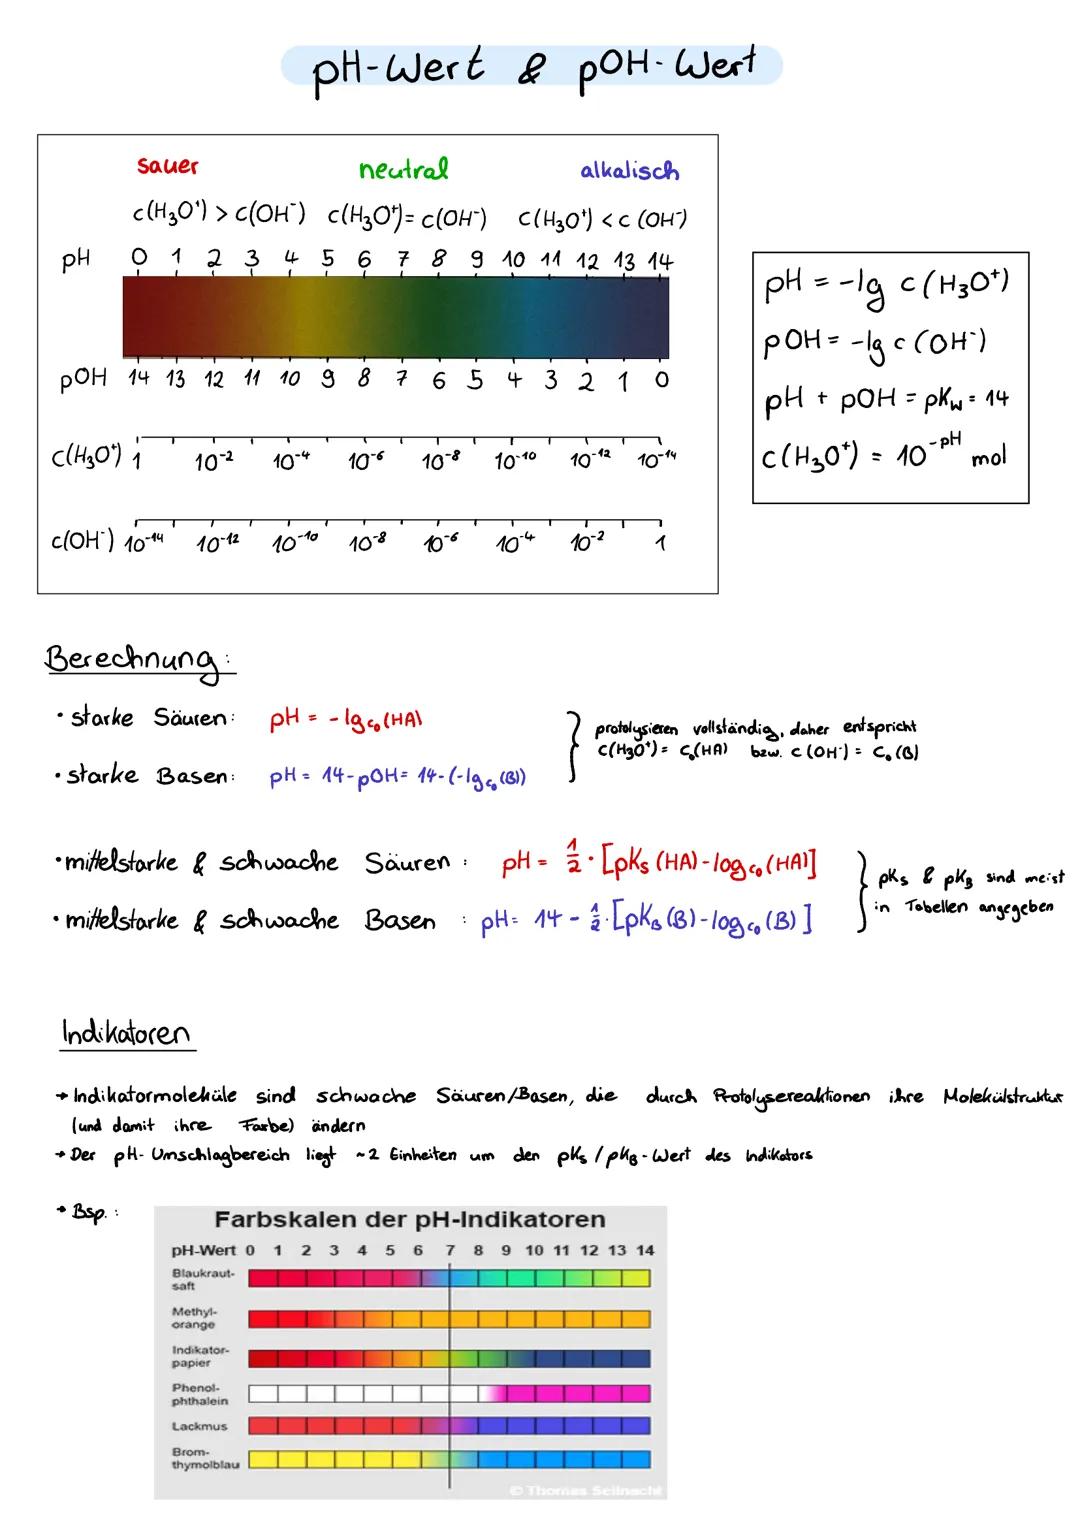 pH-Wert & pOH-Wert
sauer neutral alkalisch
c(H₃O⁺) > c(OH⁻) c(H₃O⁺) = c(OH⁻) c(H₃O⁺) < c(OH⁻)
pH 0 1 2 3 4 5 6 7 8 9 10 11 12 13 14
pOH 14 13 12 11 10 9 8 7 6 5 4 3 2 1 0
c(H₃O⁺) 1 10⁻² 10⁻⁴ 10⁻⁶ 10⁻⁸ 10⁻¹⁰ 10⁻¹² 10⁻¹⁴
c(OH⁻) 10⁻¹⁴ 10⁻¹² 10⁻¹⁰ 10⁻⁸ 10⁻⁶ 10⁻⁴ 10⁻² 1
pH = -lg c(H₃O⁺)
pOH = -lg c(OH⁻)
pH + pOH = pKw = 14
c(H₃O⁺) = 10^-pH mol
Berechnung:
• starke Säuren: pH = -lg c₀(HA)
• starke Basen: pH = 14-pOH = 14-(-lg c₀(B))
} protolysieren vollständig, daher entspricht
c(H₃O⁺) = c₀(HA) bzw. c(OH⁻) = c₀(B)
• mittelstarke & schwache Säuren: pH = ½ · [pKs (HA) - log c₀ (HA)]
• mittelstarke & schwache Basen: pH = 14 - ½ · [pKB (B) - log c₀ (B)]
} pKs & pKB sind meist
in Tabellen angegeben
Indikatoren
→ Indikatormoleküle sind schwache Säuren/Basen, die durch Protolysereaktionen ihre Molekülstruktur
(und damit ihre Farbe) ändern
→ Der pH-Umschlagbereich liegt ~2 Einheiten um den pKs / pKB-Wert des Indikators
→ Bsp.:
Farbskalen der pH-Indikatoren
pH-Wert 0 1 2 3 4 5 6 7 8 9 10 11 12 13 14
Blaukraut-
saft
Methyl-
orange
Indikator-
papier
Phenol-
phthalein
Lackmus
Brom-
thymolblau
© Thomas Seilnacht